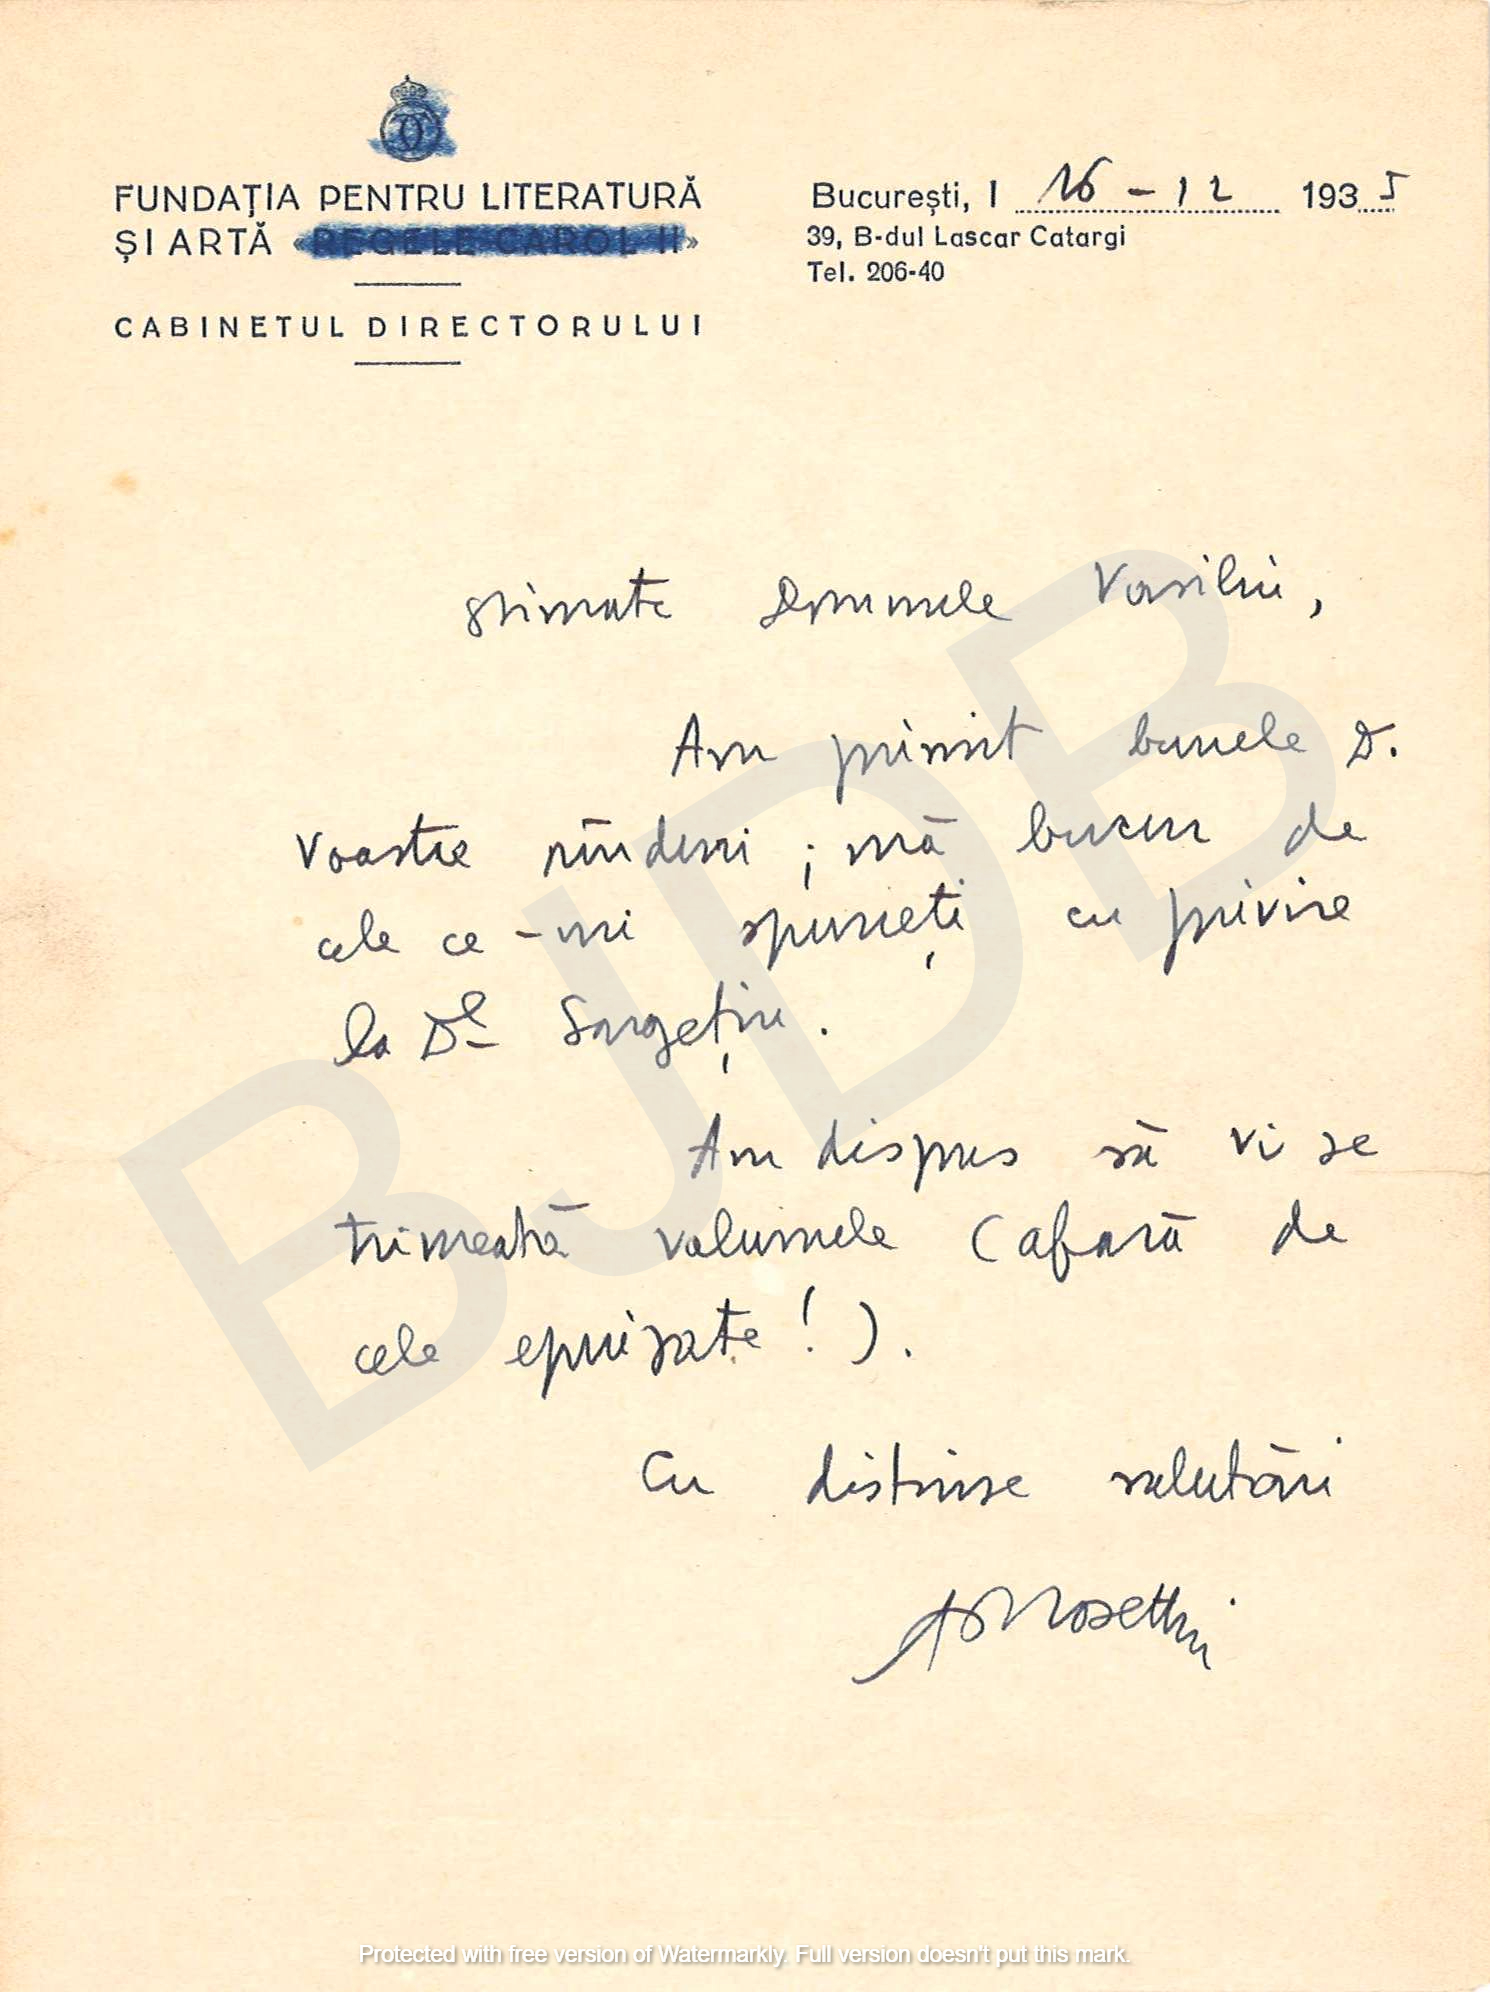 FUNDAȚIA PENTRU LITERATURĂ
ȘI ARTĂ «REGELE CAROL II»
CABINETUL DIRECTORULUI
București, I 16-12 1935
39, B-dul Lascar Catargi
Tel. 206-40
Stimate Domnule Vasiliu,
Am primit bunele D.
Voastre rînduri; mă bucur de
cele ce-mi spuneți cu privire
la Dl Sargețiu.
Am dispus să vi se
trimeată volumele (afară de
cele epuizate!).
Cu distinse salutări
A Rosetti
BJDB
Protected with free version of Watermarkly. Full version doesn't put this mark.